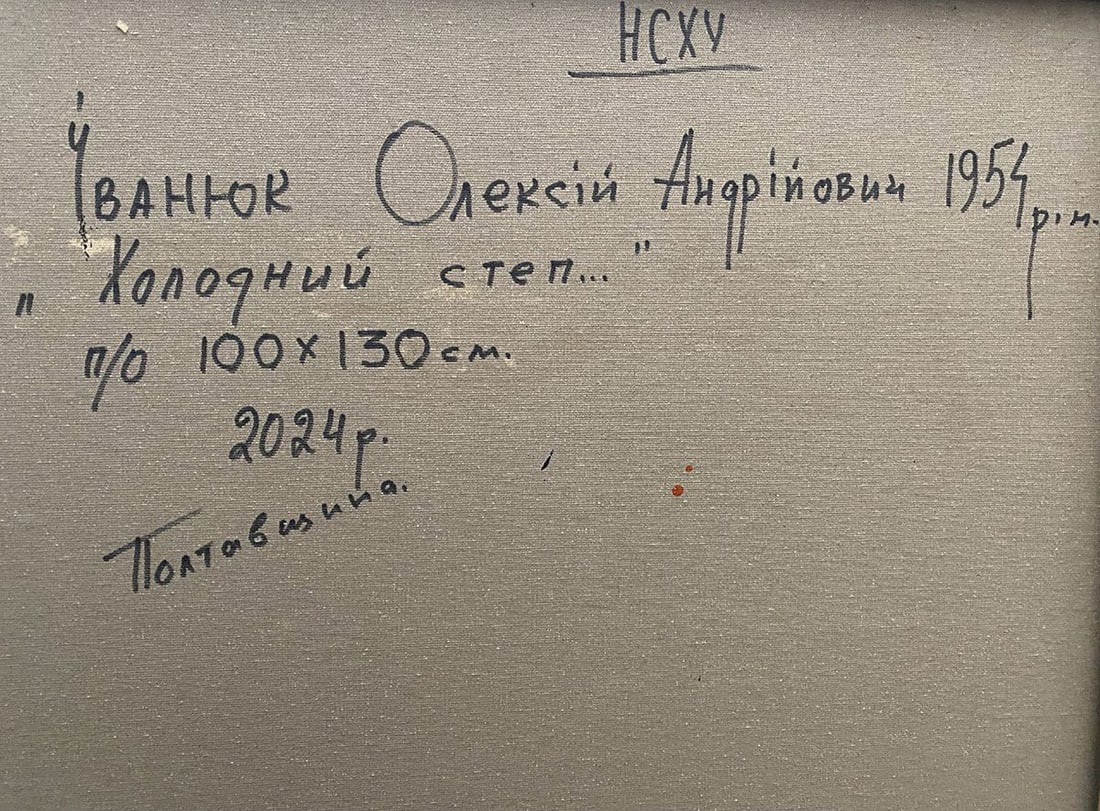 НСХУ
Іванюк Олексій Андрійович 1954 р.н.
„Холодний степ..."
п/о 100х130 см.
2024р.
Полтавщина.